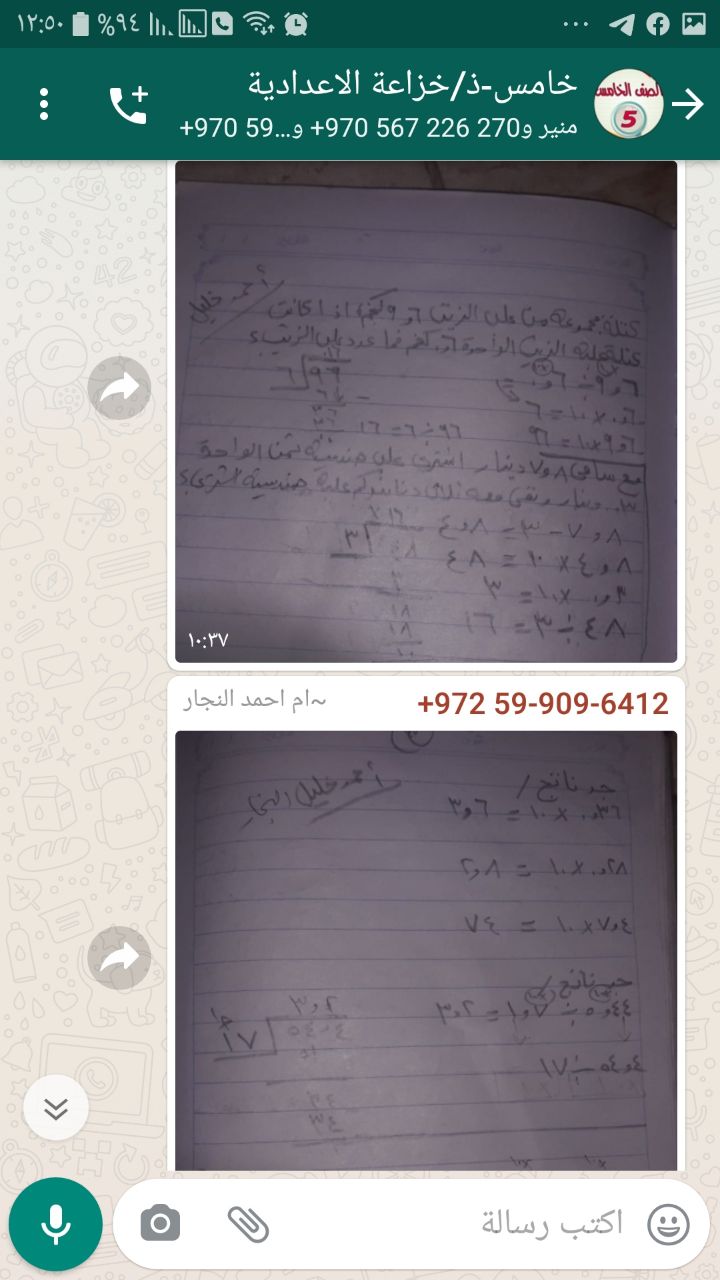 ١٢:٥٠ %٩٤ ...
خامس-ذ/خزاعة الاعدادية
منير و270 226 567 970+ و...59 970+
الصف الخامس
5
أحمد خليل
كتلة مجموعة من علب الزيت ٩,٦ كغم اذا كانت
كتلة علبة الزيت الواحدة ٠,٦ كغم فما عدد علب الزيت؟
٩,٦ ÷ ٠,٦ =
٠,٦ × ١٠ = ٦
٩,٦ × ١٠ = ٩٦
٩٦ ÷ ٦ = ١٦
مع سامي ٧,٨ دينار اشترى علب هندسية ثمن الواحدة
٠,٣ دينار وبقي معه ثلاث دنانير كم علبة هندسية اشترى؟
٧,٨ - ٣ = ٤,٨
٤,٨ × ١٠ = ٤٨
٠,٣ × ١٠ = ٣
٤٨ ÷ ٣ = ١٦
١٠:٣٧
+972 59-909-6412 ~ام احمد النجار
جد ناتج /
أحمد خليل النجار
٠,٣٦ × ١٠ = ٣,٦
٠,٢٨ × ١٠ = ٢,٨
٤,٧ × ١٠ = ٤٧
جد ناتج /
٥,٤٤ ÷ ١,٧ = ٣,٢
٥٤,٤ ÷ ١٧
٣,٢
١٧ ٥٤,٤
٥١
٣٤
٣٤
اكتب رسالة